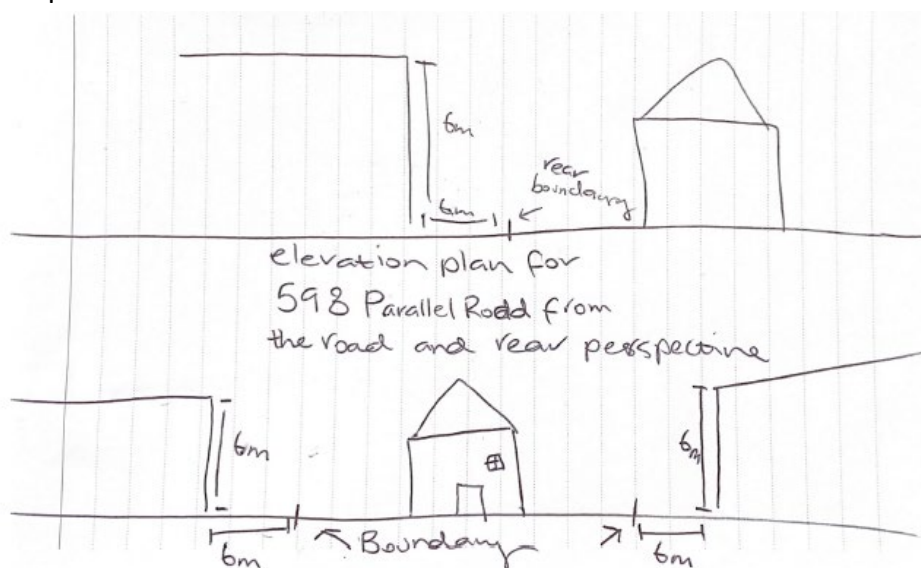 6m
6m
rear
boundary
elevation plan for
598 Parallel Rodd from
the road and rear perspective
6m
6m
6m
Boundary
6m